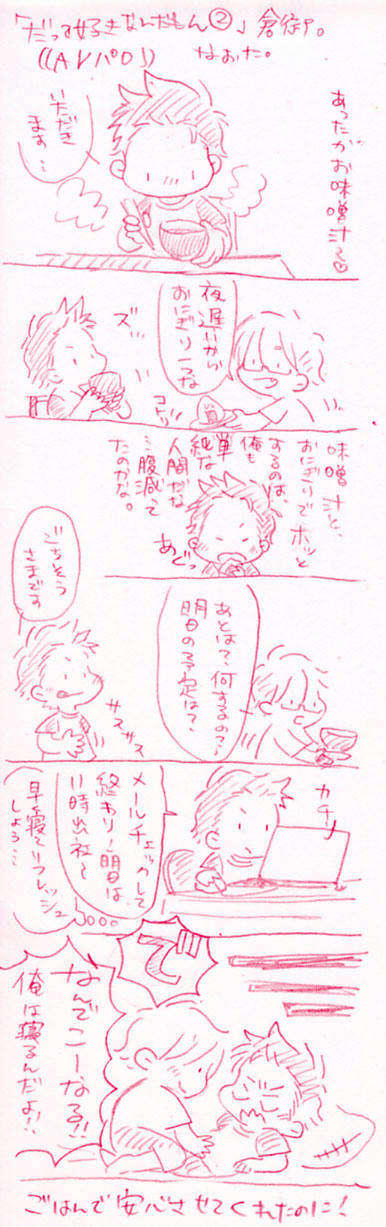 「だって好きなんだもん②」倉御ア。
((AVパロ)) なおた。
あったかお味噌汁〜♡
いただき
ます…
夜遅いから
おにぎり一つな
ズ…
コトッ
味噌汁と、
おにぎりでホッと
するのは、
俺も
単純な
人間だな
…腹減って
たのかな。
あぐっ
あとはて、何するの?
明日の予定は?
ごちそう
さまです
サス
サス
カチッ
メールチェックして
終わりー!明日は
11時出社〜
早く寝てリフレッシュ
しよう…
で!!
なんでこーなる!!
俺は寝るんだよ!!
ごはんで安心させてくれたのに!